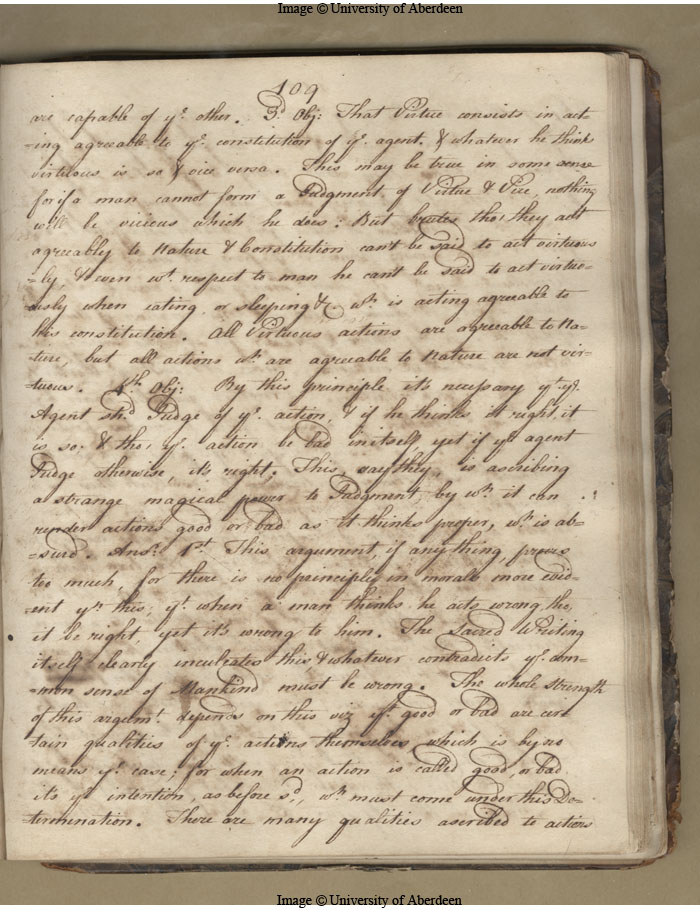 Image © University of Aberdeen
109
are capable of ye. other. 3d. Obj: That Virtue consists in act-
-ing agreeable to ye. constitution of ye. agent. & whatever he thinks
virtuous is so & vice versa. This may be true in some sense
for if a man cannot form a Judgment of Virtue & Vice, nothing
will be vicious which he does: But brutes tho' they act
agreeably to Nature & Constitution can't be said to act virtuous
-ly, & even wt. respect to man he can't be said to act virtuo-
-usly when eating or sleeping &c wh. is acting agreeable to
his constitution. All Virtuous actions are agreeable to Na-
-ture, but all actions wh. are agreeable to Nature are not vir-
-tuous. 4th. Obj: By this principle it's necessary yt. ye.
Agent shd. Judge of ye. action, & if he thinks it right, it
is so. & tho' ye. action be bad in itself yet if ye. agent
Judge otherwise, it's right. This, say they, is ascribing
a strange magical power to Judgment, by wh. it can
render actions good or bad as it thinks proper, wh. is ab-
-surd. Ansr. 1st. This argument, if any thing, proves
too much, for there is no principle in morals more evid-
-ent yn. this, yt. when a man thinks he acts wrong, tho'
it be right, yet it's wrong to him. The Sacred Writing
itself clearly inculcates this & whatever contradicts ye. com-
-mon sense of Mankind must be wrong. The whole strength
of this argumt. depends on this viz yt. good or bad are cer
-tain qualities of ye. actions themselves, which is by no
means ye. case; for when an action is called good, or bad
it's ye. intention, as before sd., wh. must come under this De-
-termination. There are many qualities ascribed to actions
Image © University of Aberdeen